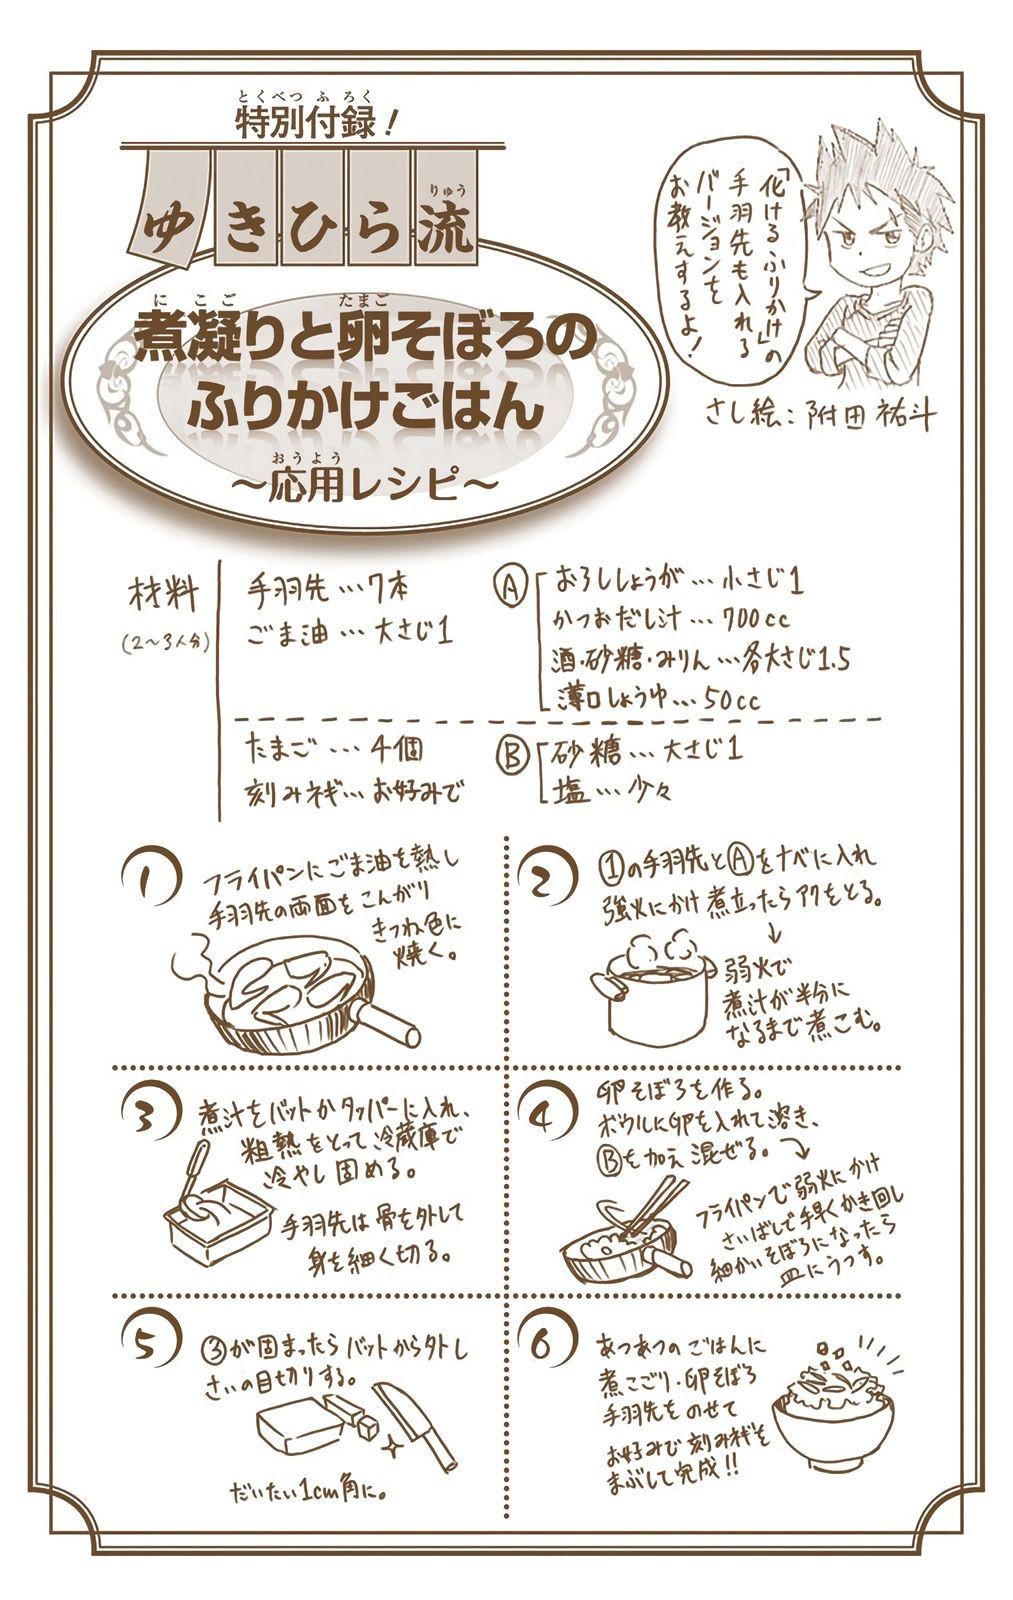 特別付録！
ゆきひら流
煮凝りと卵そぼろの
ふりかけごはん
～応用レシピ～
「化けるふりかけ」の
手羽先も入れる
バージョンを
お教えするよ！
さし絵：附田祐斗
材料
(2～3人分)
手羽先…7本
ごま油…大さじ1
Ⓐ
おろししょうが…小さじ1
かつおだし汁…700cc
酒・砂糖・みりん…各大さじ1.5
薄口しょうゆ…50cc
たまご…4個
刻みネギ…お好みで
Ⓑ
砂糖…大さじ1
塩…少々
1
フライパンにごま油を熱し
手羽先の両面をこんがり
きつね色に
焼く。
2
①の手羽先とⒶをナベに入れ
強火にかけ煮立ったらアクをとる。
↓
弱火で
煮汁が半分に
なるまで煮こむ。
3
煮汁をバットかタッパーに入れ、
粗熱をとって冷蔵庫で
冷やし固める。
手羽先は骨を外して
身を細く切る。
4
卵そぼろを作る。
ボウルに卵を入れて溶き、
Ⓑを加え混ぜる。
フライパンで弱火にかけ
さいばしで手早くかき回し
細かいそぼろになったら
皿にうつす。
5
③が固まったらバットから外し
さいの目切りする。
だいたい1cm角に。
6
あつあつのごはんに
煮こごり・卵そぼろ
手羽先をのせて
お好みで刻みネギを
まぶして完成!!